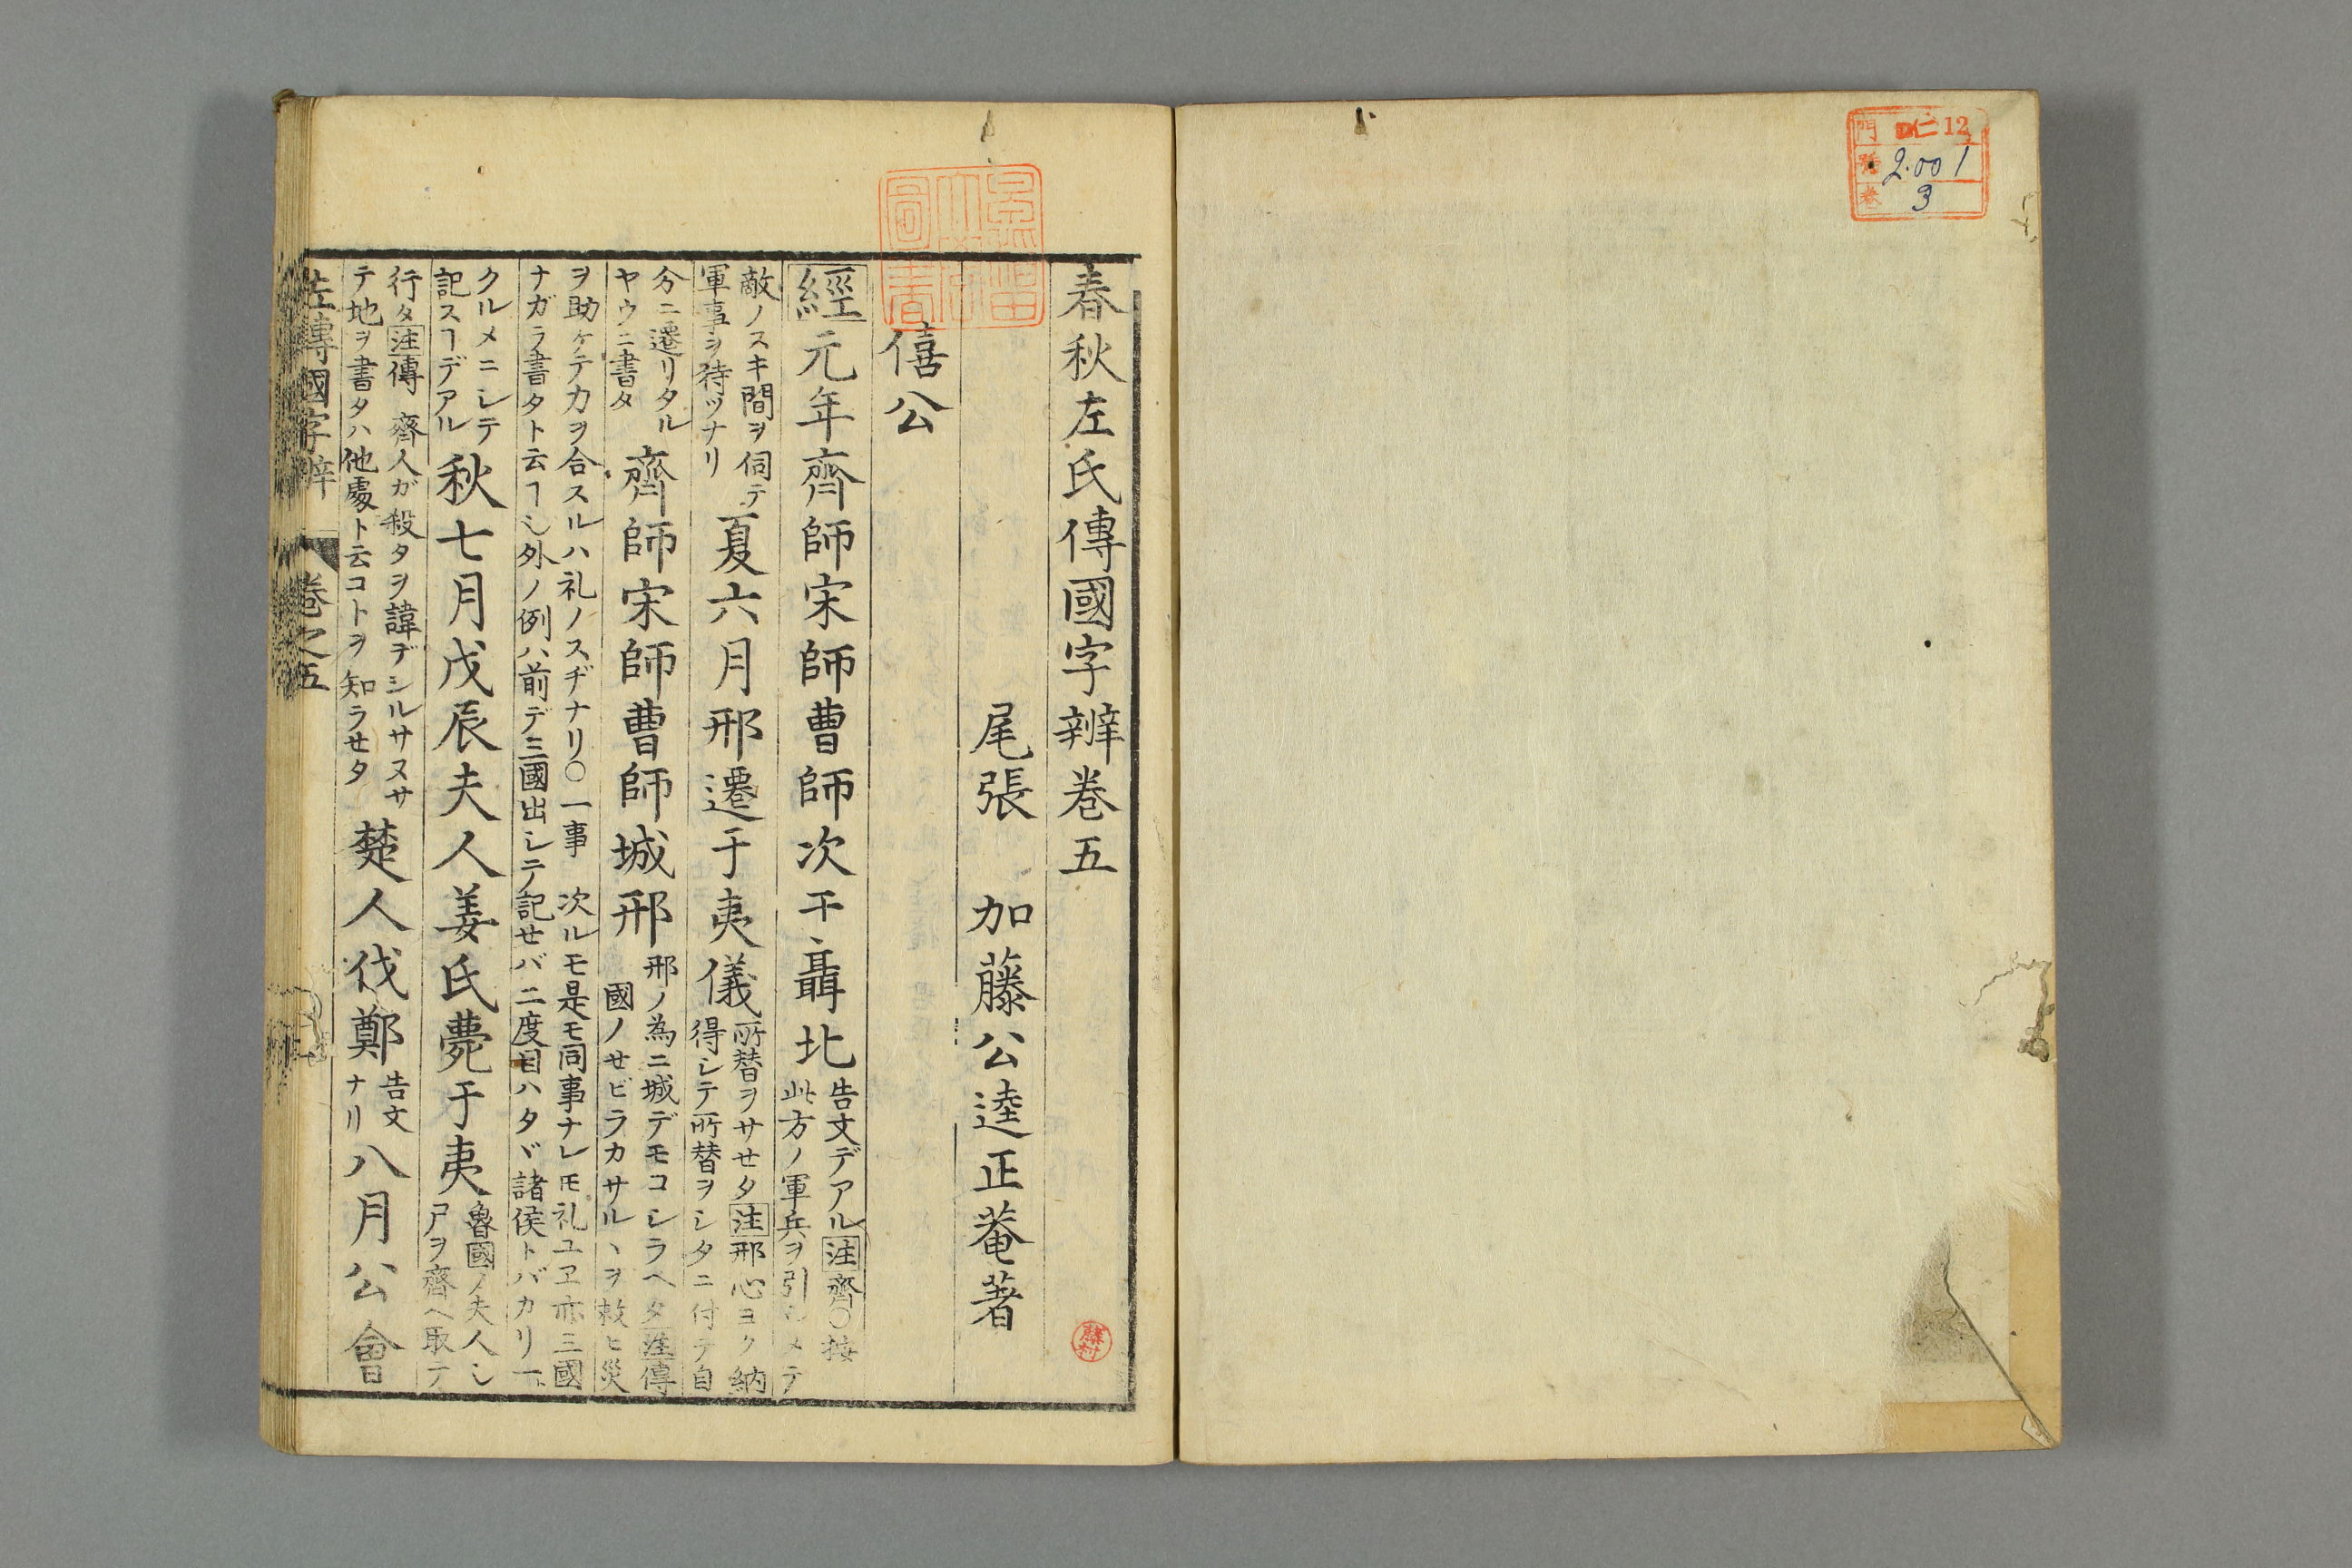 門 仁12
号 2.001
巻 3
春秋左氏傳國字辨巻五
尾張 加藤公逵正菴著
僖公
經元年齊師宋師曹師次于聶北
告文デアル注齊〇按
此方ノ軍兵ヲ引シメテ
敵ノスキ間ヲ伺テ
軍事ヲ待ツナリ
夏六月邢遷于夷儀
所替ヲサセタ注邢心ヨク納
得シテ所替ヲシタニ付テ自
分ニ遷リタル
ヤウニ書タ
齊師宋師曹師城邢
邢ノ為ニ城デモコシラヘタ注傳
國ノセビラカサルヽヲ救ヒ災
ヲ助ケテ力ヲ合スルハ礼ノスヂナリ〇一事
ナガラ書タト云ヿ乄外ノ例ハ前デ三國出シテ
次ルモ是モ同事ナレ𪜈礼ユヱ亦三國
記セバ二度目ハタヾ諸侯トバカリ
クルメニシテ
記スヿデアル
秋七月戊辰夫人姜氏薨于夷
魯國ノ夫人シ
尸ヲ齊ヘ取テ
行タ注傳 齊人ガ殺タヲ諱デシルサヌサ
テ地ヲ書タハ他處ト云コトヲ知ラセタ
楚人伐鄭
告文
ナリ
八月公會
左傳國字辨 巻之五